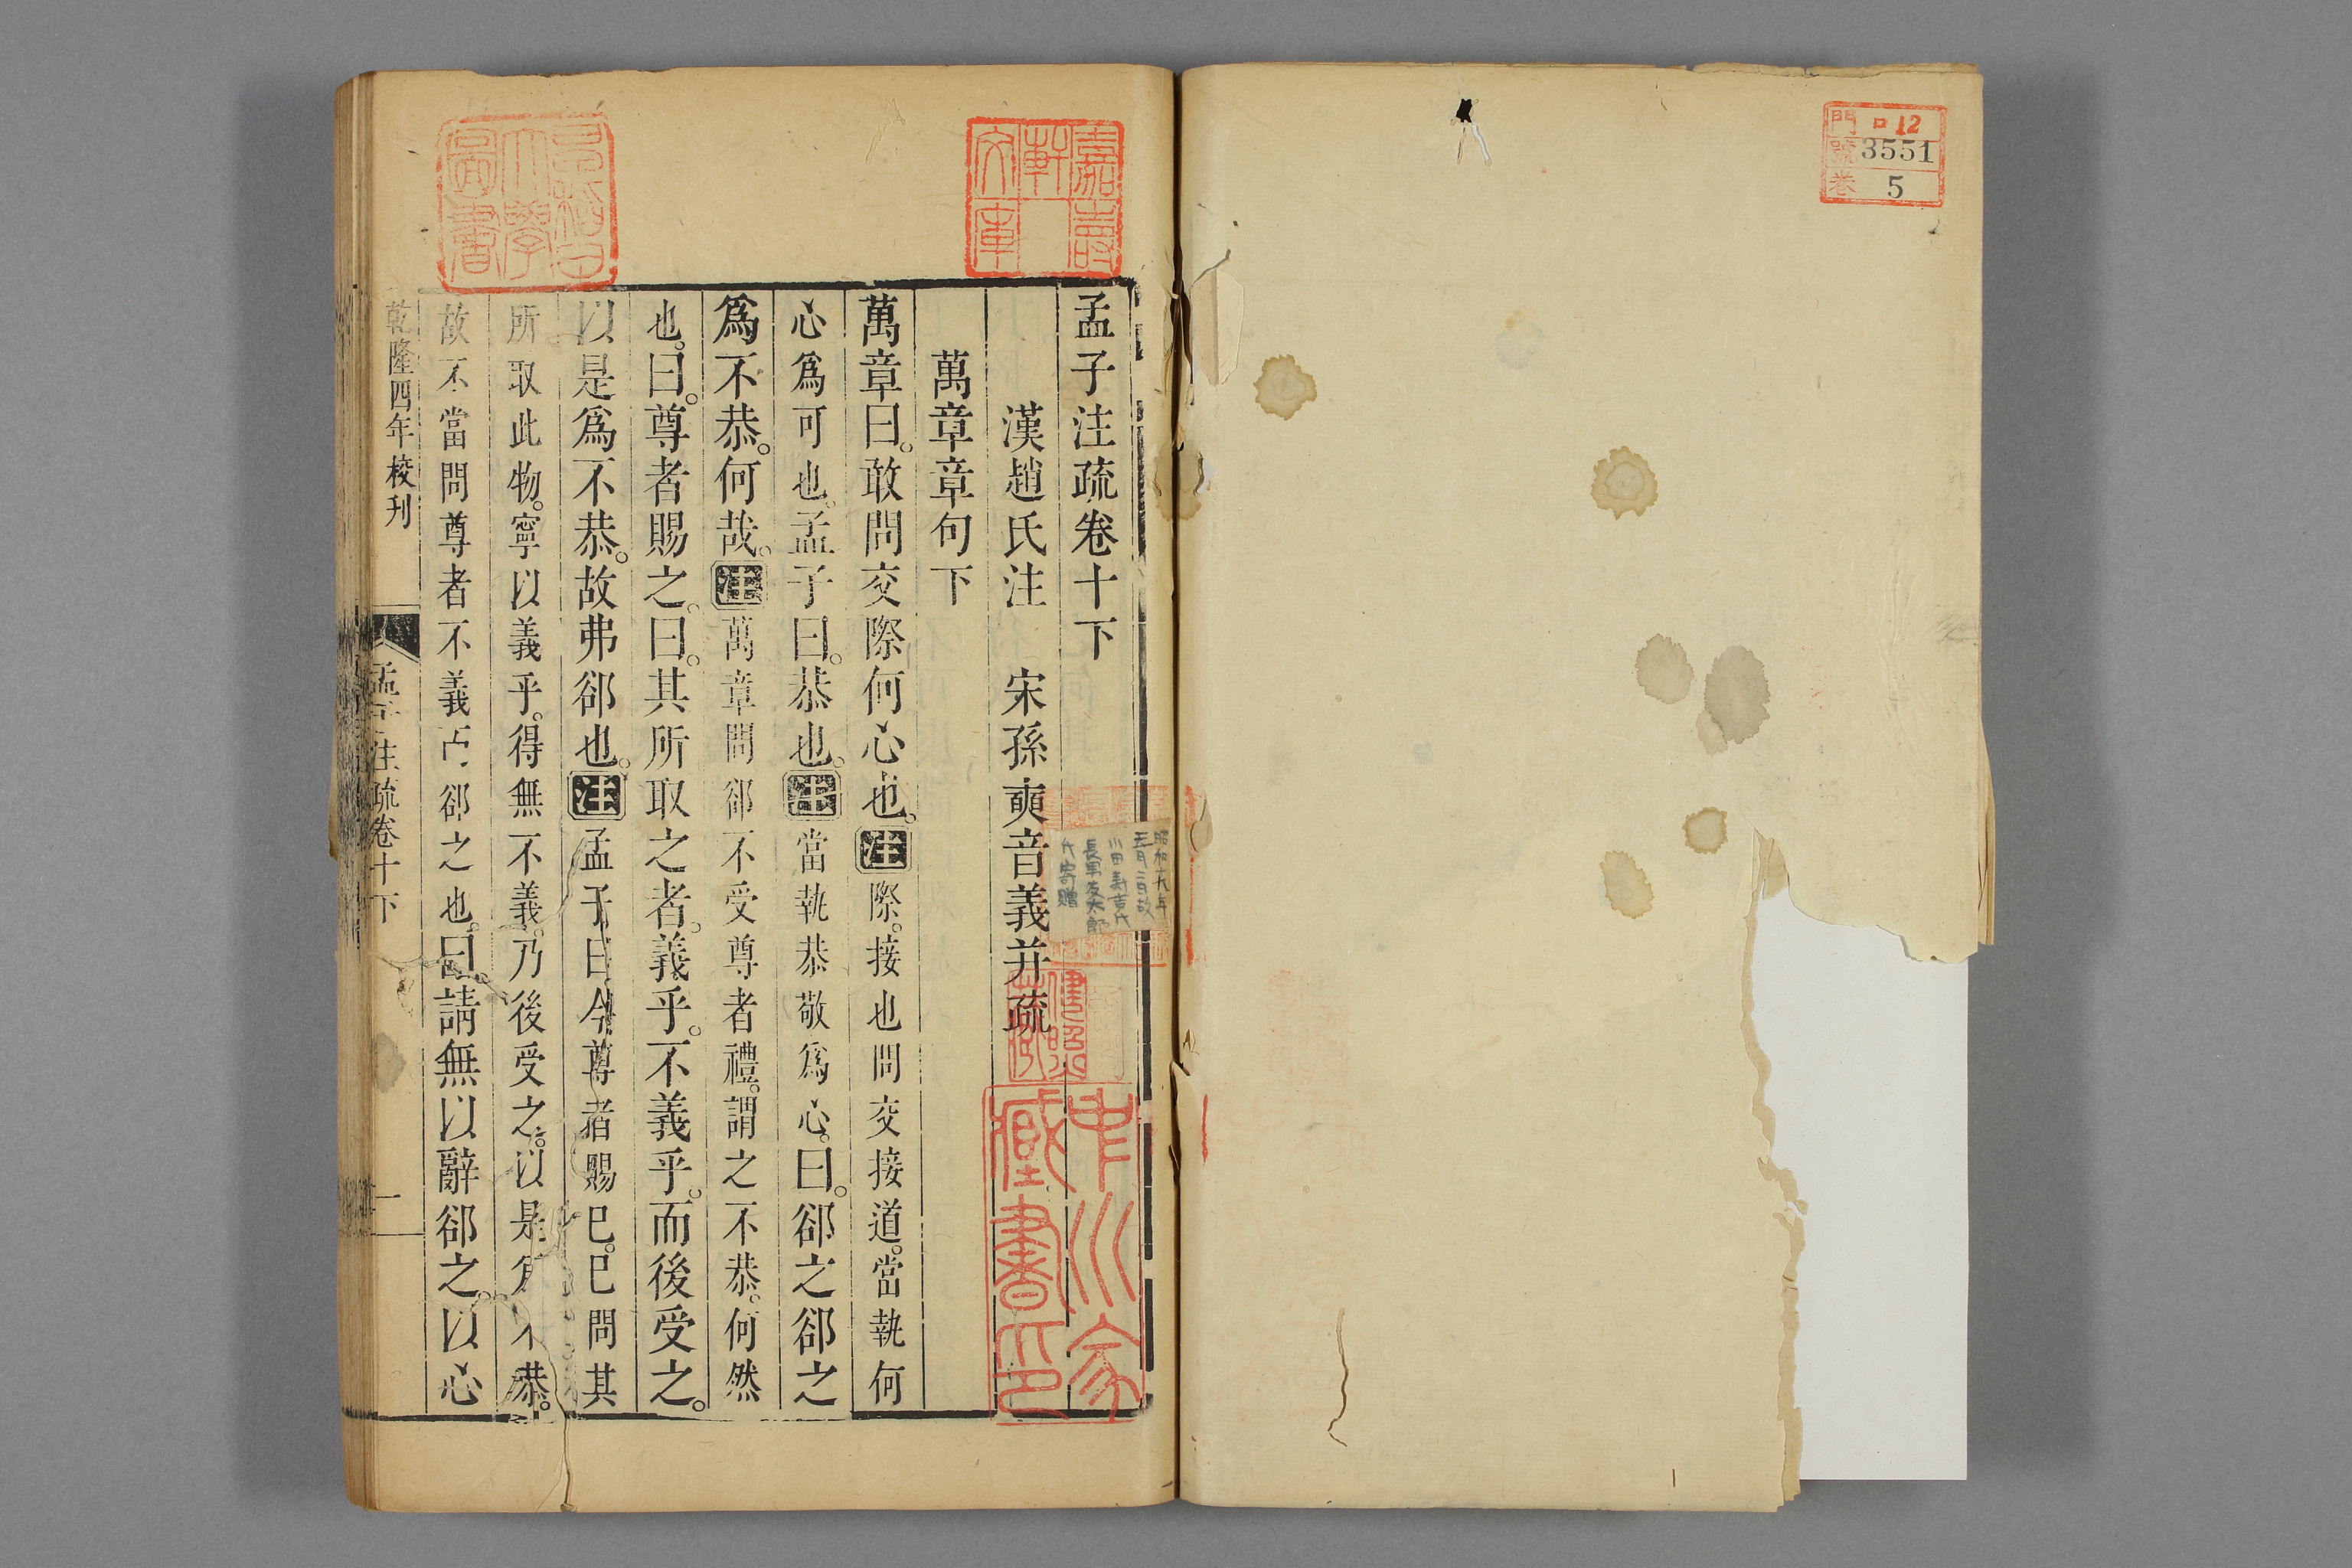 門 ロ12
號 3551
卷 5
嘉壽
軒
文庫
孟子注疏卷十下
漢趙氏注 宋孫奭音義并疏
萬章章句下
萬章曰。敢問交際何心也。注際。接也問交接道。當執何
心為可也。孟子曰。恭也。注當執恭敬為心。曰。郤之郤之
爲不恭。何哉。注萬章問郤不受尊者禮。謂之不恭。何然
也。曰。尊者賜之。曰。其所取之者。義乎。不義乎。而後受之。
以是爲不恭。故弗郤也。注孟子曰今尊者賜巳。巳問其
所取此物。寧以義乎。得無不義。乃後受之。以是不恭。
故不當問尊者不義而郤之也。曰。請無以辭郤之。以心
乾隆四年校刊
孟子注疏卷十下
一
昭和十九年
長男友太郎
氏寄贈
中川家
藏書印
大學
圖書